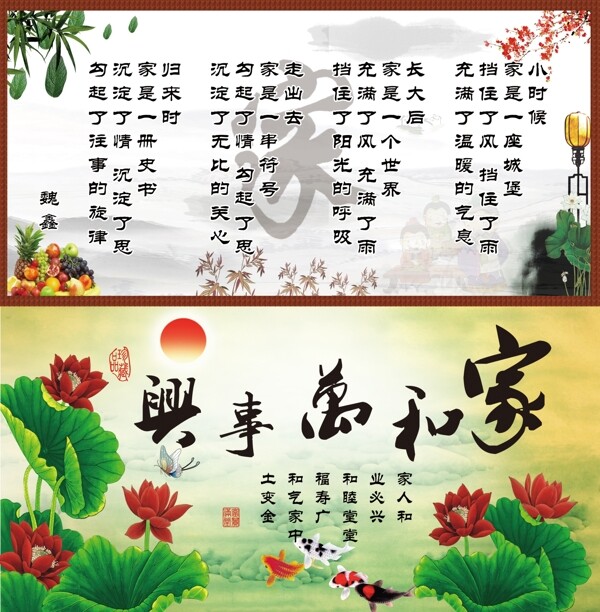 小时候
家是一座城堡
挡住了风 挡住了雨
充满了温暖的气息
长大后
家是一个世界
充满了风 充满了雨
挡住了阳光的呼吸
走出去
家是一串符号
勾起了情 勾起了思
沉淀了无比的关心
归来时
家是一册史书
沉淀了情 沉淀了思
勾起了往事的旋律
魏鑫
家
家和萬事興
家人和
业必兴
和睦堂堂
福寿广
和气家中
土变金